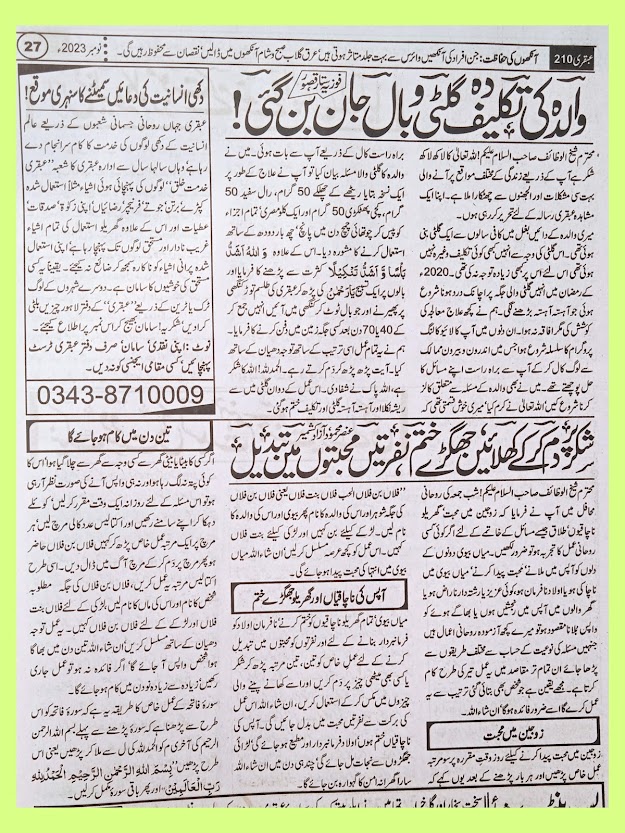 عبقری 210
آنکھوں کی حفاظت: جن افراد کی آنکھیں وائرس سے بہت جلد متاثر ہوتی ہیں عرق گلاب صبح و شام آنکھوں میں ڈالیں نقصان سے محفوظ رہیں گی۔
نومبر 2023ء
27
والدہ کی تکلیف دہ گلٹی وبال جان بن گئی!
فوزیہ ستار قصور
محترم شیخ الوظائف صاحب السلام علیکم! اللہ تعالیٰ کا لاکھ لاکھ
شکر ہے آپ کے ذریعے زندگی کے مختلف مواقع پر آنے والی
بہت سی مشکلات اور الجھنوں سے چھٹکارا ملا ہے۔ اپنا ایک
مشاہدہ عبقری رسالہ کے لئے تحریر کر رہی ہوں۔
میری والدہ کے دائیں بغل میں کافی سالوں سے ایک گلٹی بنی
ہوئی تھی۔ اس گلٹی کی وجہ سے انہیں کبھی کوئی تکلیف وغیرہ نہیں
ہوئی تھی اس لئے اس پر کبھی زیادہ توجہ نہ کی تھی۔ 2020ء
کے رمضان میں انہیں گلٹی والی جگہ پر اچانک درد ہونا شروع
ہو گیا جو آہستہ آہستہ بڑھنے لگی۔ ہم نے کچھ علاج معالجہ کی
کوشش کی مگر افاقہ نہ ہوا۔ ان دنوں میں آپ کا لائیو کالنگ
پروگرام کا سلسلہ شروع ہوا جس میں اندرون و بیرون ممالک
سے لوگ کال کر کے آپ سے براہ راست اپنے مسائل کا
حل پوچھتے تھے۔ میں نے بھی والدہ کے مسئلہ سے متعلق کالز
کرنا شروع کیں اللہ تعالیٰ نے کرم کیا میری خوش قسمتی تھی کہ
براہ راست کال کے ذریعے آپ سے بات ہوئی۔ میں نے
والدہ کا گلٹی والا مسئلہ بیان کیا تو آپ نے علاج کے طور پر
ایک نسخہ بتایا ریٹھے کے چھلکے 50 گرام، رال سفید 50
گرام، کچی پھٹکڑی 50 گرام اور ایک کلو مصری تمام اجزاء
کو پیس کر چوتھائی چمچ دن میں پانچ چھ بار دودھ کے ساتھ
استعمال کرنے کا مشورہ دیا۔ اس کے علاوہ وَاللّٰهُ اَشَدُّ
بَاْسًا وَّ اَشَدُّ تَنْكِيْلًا کثرت سے پڑھنے کا فرمایا اور
بالوں پر ایک تسبیح یَارَحْمٰنُ کی پڑھ کر عبقری کی طلسم توڑ کنگھی
پر پھیرنے اور جو بال ٹوٹ کر کنگھی میں آئیں انہیں جمع کر
کے 40 یا 70 دن بعد کسی جگہ زمین میں دفن کرنے کا فرمایا۔
ہم نے یہ تمام عمل اسی ترتیب کے ساتھ توجہ دھیان کے ساتھ
کیا۔ آیت پڑھ پڑھ کر دم کرتے رہے۔ الحمدللہ! اللہ کا شکر
ہے، اللہ پاک نے شفا دی۔ اس عمل کے دوران گلٹی میں سے
ریشہ نکلا اور آہستہ آہستہ گلٹی اور تکلیف ختم ہو گئی۔
دکھی انسانیت کی دعائیں سمیٹنے کا سنہری موقع!
عبقری جہاں روحانی جسمانی شعبوں کے ذریعے عالم
انسانیت کے دکھی لوگوں کی خدمت کا کام سرانجام دے
رہا ہے وہاں سالہا سال سے ادارہ عبقری کا شعبہ "عبقری
خدمت خلق" لوگوں کی پہنچائی ہوئی اشیاء مثلاً استعمال شدہ
کپڑے برتن جوتے فرنیچر رضائیاں اپنی زکوٰۃ صدقات
عطیات اور اس کے علاوہ گھریلو استعمال کی تمام اشیاء
غریب نادار اور مستحق لوگوں تک پہنچا رہا ہے اپنی استعمال
شدہ پرانی اشیاء کو ناکارہ سمجھ کر ضائع نہ کیجئے۔ یقیناً یہ کسی
مستحق کی خوشیوں کا سامان ہے۔ دوسرے شہروں کے لوگ
ٹرک یا ٹرین کے ذریعے "عبقری" کے دفتر لاہور چیزیں بلٹی
کرا دیں شکریہ! سامان بھیج کر اس نمبر پر اطلاع کیجئے۔
نوٹ: اپنی نقدی سامان صرف دفتر عبقری ٹرسٹ
پہنچائیں کسی مقامی ایجنسی کو نہ دیں۔
0343-8710009
تین دن میں کام ہو جائے گا
اگر کسی کا بیٹا یا بیٹی گھر سے کسی وجہ سے گھر سے چلا گیا ہو اس کا
کوئی پتہ نہ لگ رہا ہو اور نہ ہی واپس آنے کی صورت نظر آ رہی
ہو تو اس مسئلہ کے لئے روزانہ ایک وقت مقرر کریں کوئلے
دہکا کر اپنے سامنے رکھیں اور اکتالیس عدد کالی مرچ لیں ہر
مرچ پر ایک مرتبہ عمل خاص پڑھ کر کہیں فلاں بن فلاں حاضر
ہو پھر مرچ پر دم کر کے مرچ آگ میں ڈال دیں۔ اس طرح
اکتالیس مرتبہ یہ عمل کریں، فلاں بن فلاں کی جگہ مطلوبہ
شخص کا نام اور اس کی ماں کا نام لیں لڑکی کے لئے فلاں بنت
فلاں اور لڑکے کے لئے فلاں بن فلاں کہیں۔ یہ عمل توجہ
دھیان کے ساتھ مسلسل کریں ان شاء اللہ تین دن میں بھاگا
ہوا شخص واپس آ جائے گا۔ اگر فائدہ نہ ہو تو عمل جاری
رکھیں زیادہ سے زیادہ نو دن میں کام ہو جائے گا۔
سورۂ فاتحہ کے عمل خاص کا طریقہ یہ ہے کہ سورۂ فاتحہ کو اس
طرح سے پڑھنا ہے کہ سورۂ پڑھنے سے پہلے بسم اللہ الرحمن
الرحیم کی آخری م کو الحمدللہ کی ل سے ملا کر پڑھیں یعنی اس
طرح پڑھیں "بِسْمِ اللّٰهِ الرَّحْمٰنِ الرَّحِيْمِ الْحَمْدُ لِلّٰهِ
رَبِّ الْعَالَمِيْنَ" اور پھر باقی سورۂ مکمل کر لیں۔
شکر پر دم کر کے کھلائیں جھگڑے ختم نفرتیں محبتوں میں تبدیل
محترم شیخ الوظائف صاحب السلام علیکم! شب جمعہ کی روحانی
محافل میں آپ نے فرمایا کہ زوجین میں محبت گھریلو
ناچاقیوں طلاق جیسے مسائل کے خاتمے کے لئے اگر کوئی کسی
روحانی عمل کا تجربہ ہو تو ضرور لکھیں۔ میاں بیوی دونوں کے
دلوں کو آپس میں ملانے محبت پیدا کرنے میاں بیوی میں
جدائی ہو یا اولاد نافرمان ہو، کوئی عزیز یا رشتہ دار ناراض ہو یا
گھر والوں میں آپس میں رنجشیں ہوں یا بھاگے ہوئے کو
واپس بلانا مقصود ہو تو میرے کچھ آزمودہ روحانی اعمال ہیں
جنہیں مسئلہ کی نوعیت کے حساب سے مختلف طریقوں سے
پڑھا جائے ان تمام تر مقاصد میں یہ عمل تیر کی طرح کام
کرتا ہے۔ مجھے یقین ہے جو شخص بھی بتائی گئی ترتیب سے یہ
عمل کرے گا اسے ضرور فائدہ ہو گا ان شاء اللہ۔
زوجین میں محبت
زوجین میں محبت پیدا کرنے کیلئے روز وقت مقررہ پر سو مرتبہ
عمل خاص پڑھیں اور ہر بار پڑھنے کے بعد یوں کہے کہ
"فلاں بن فلاں الحب فلاں بنت فلاں یعنی فلاں بن فلاں
کی جگہ شوہر اور اس کی والدہ کا نام پھر بیوی اور اس کی والدہ کا
نام لیں۔ لڑکے کیلئے بن کہیں اور لڑکی کیلئے بنت
کہیں۔ اس عمل کو کچھ عرصہ مسلسل کریں ان شاء اللہ میاں
بیوی میں انتہا کی محبت پیدا ہو جائے گی۔
آپس کی ناچاقیاں اور گھریلو جھگڑے ختم
میاں بیوی تمام گھریلو ناچاقیوں کو ختم کرنے نافرمان اولاد کو
فرمانبردار بنانے کے لئے اور نفرتوں کو محبتوں میں تبدیل
کرنے کے لئے عمل خاص کو تین، تین مرتبہ پڑھ کر شکر
یا کسی بھی میٹھی چیز پر دم کریں اور اسے کھانے پینے والی
چیزوں میں مکس کر کے استعمال کریں۔ ان شاء اللہ اس عمل
کی برکت سے نفرتیں محبت میں بدل جائیں گی۔ آپس کی
رنجشیں ختم ہوں اولاد فرمانبردار اور مطیع ہو جائے گی لڑائی
جھگڑوں سے نجات مل جائے گی چند ہی دن میں ان شاء اللہ
سارا گھرانہ امن کا گہوارہ بن جائے گا۔